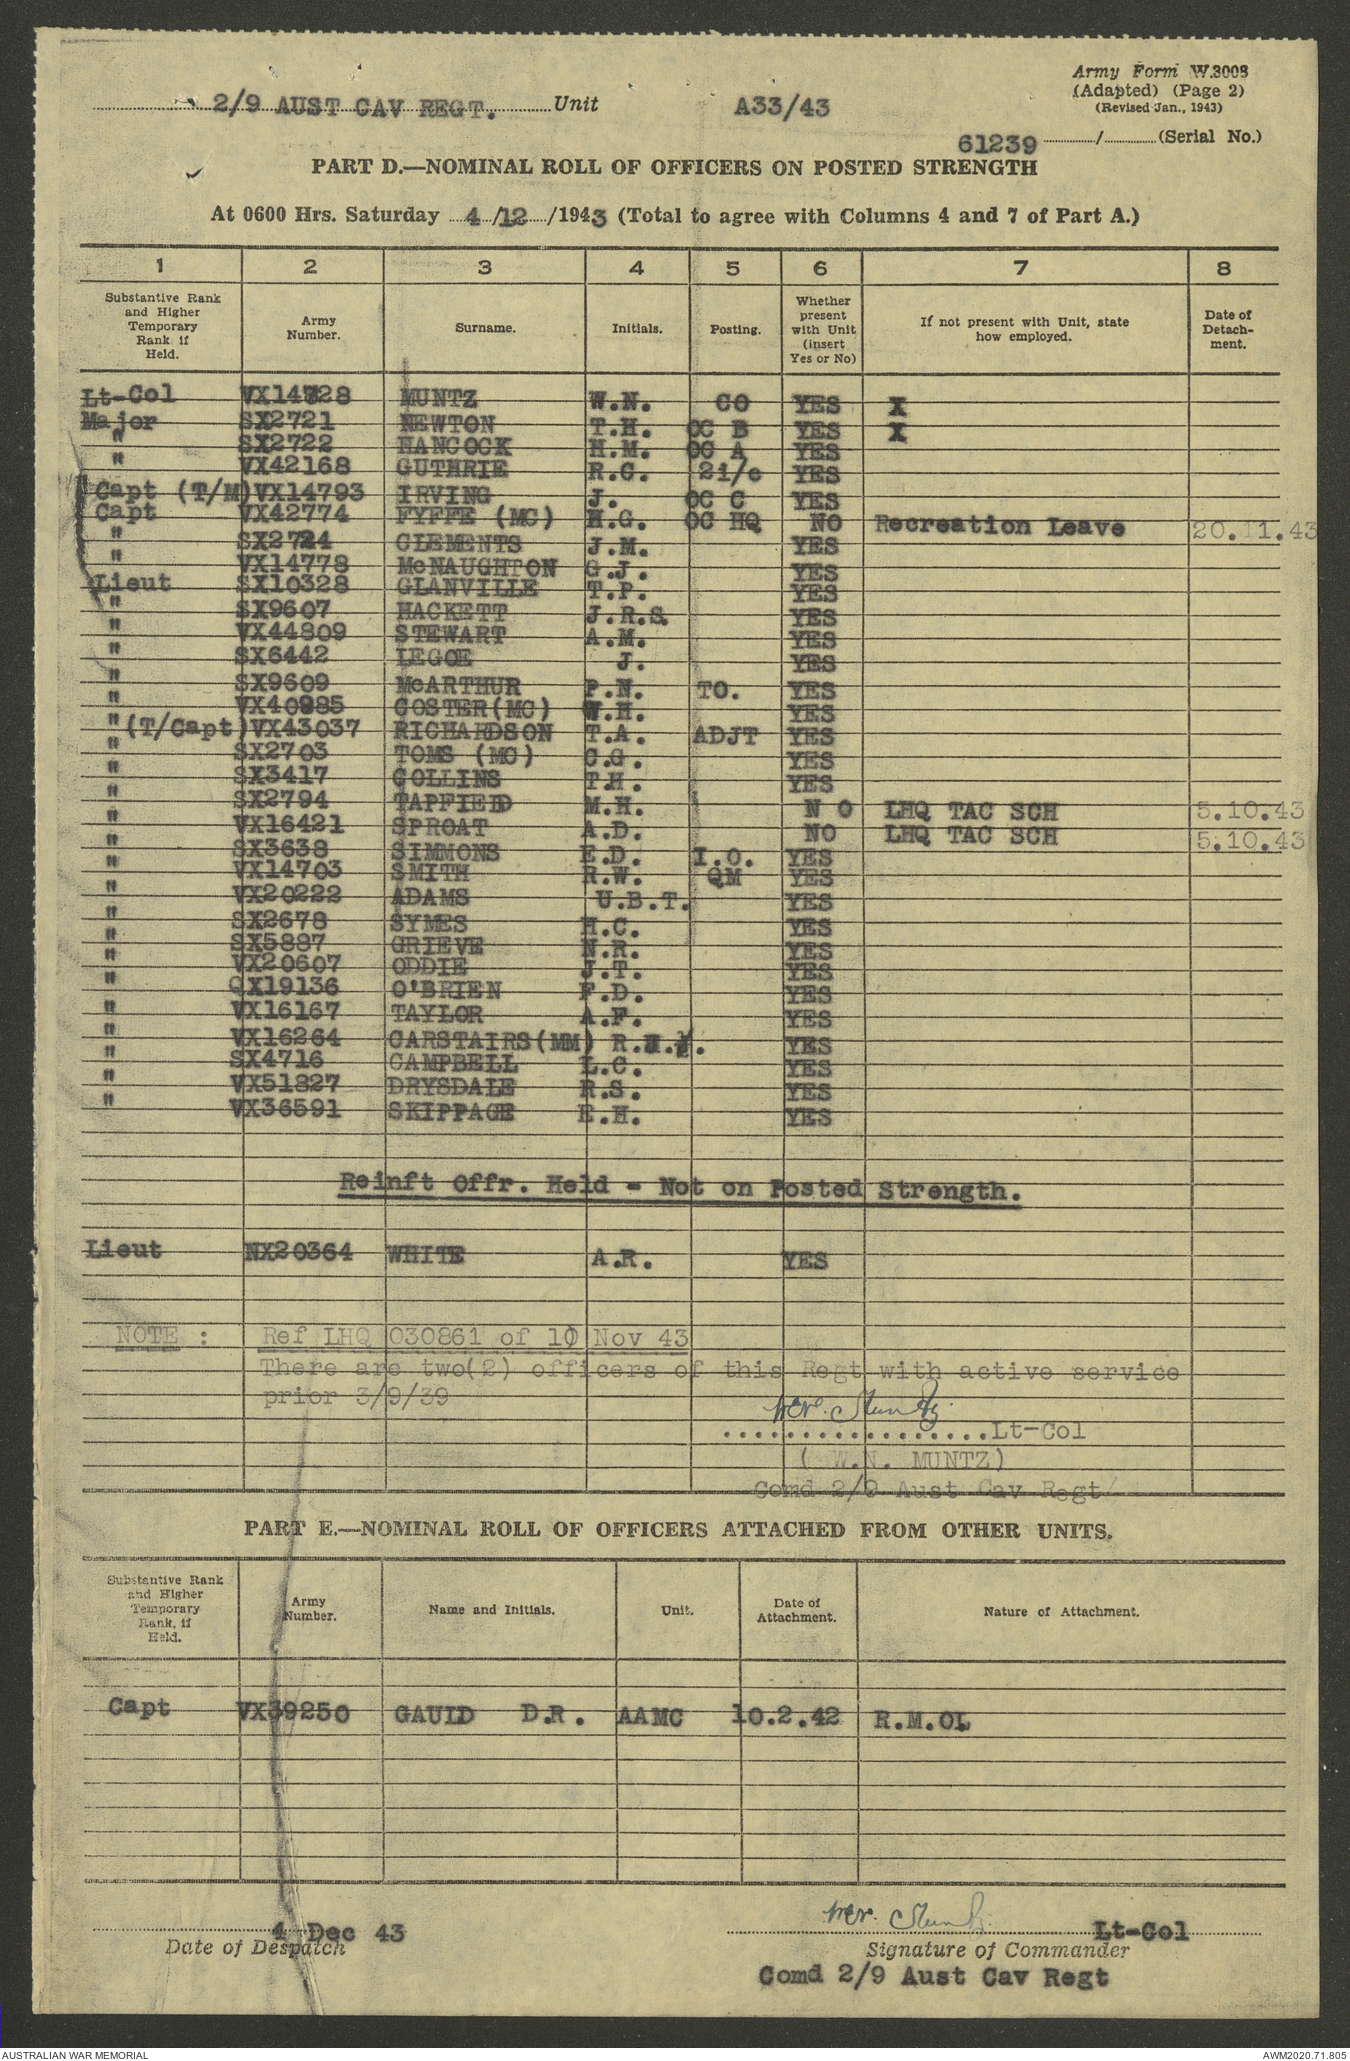 Army Form W.3008
(Adapted) (Page 2)
(Revised Jan., 1943)
2/9 AUST CAV REGT. Unit A33/43
61239 / (Serial No.)
PART D.—NOMINAL ROLL OF OFFICERS ON POSTED STRENGTH
At 0600 Hrs. Saturday 4/12/1943 (Total to agree with Columns 4 and 7 of Part A.)
1 2 3 4 5 6 7 8
Substantive Rank and Higher Temporary Rank if Held. Army Number. Surname. Initials. Posting. Whether present with Unit (insert Yes or No) If not present with Unit, state how employed. Date of Detach-ment.
Lt-Col VX14728 MUNTZ W.N. CO YES X
Major SX2721 NEWTON T.H. OC B YES X
" SX2722 HANCOCK H.M. OC A YES
" VX42168 GUTHRIE R.C. 2i/c YES
Capt (T/M) VX14793 IRVING J. OC C YES
Capt VX42774 FYFFE (MC) H.G. OC HQ NO Recreation Leave 20.11.43
" SX2724 CLEMENTS J.M. YES
" VX14778 McNAUGHTON G.J. YES
Lieut SX10328 GLANVILLE T.P. YES
" SX9607 HACKETT J.R.S. YES
" VX44809 STEWART A.M. YES
" SX6442 LEGOE J. YES
" SX9609 McARTHUR P.N. TO. YES
" VX40985 COSTER(MC) W.H. YES
" (T/Capt) VX43037 RICHARDSON T.A. ADJT YES
" SX2703 TOMS (MC) C.G. YES
" SX3417 COLLINS T.H. YES
" SX2794 TAPFIED M.H. N O LHQ TAC SCH 5.10.43
" VX16421 SPROAT A.D. NO LHQ TAC SCH 5.10.43
" SX3638 SIMMONS E.D. I.O. YES
" VX14703 SMITH R.W. QM YES
" VX20222 ADAMS U.B.T. YES
" SX2678 SYMES H.C. YES
" SX5887 GRIEVE N.R. YES
" VX20607 ODDIE J.T. YES
" QX19136 O'BRIEN F.D. YES
" VX16167 TAYLOR A.F. YES
" VX16264 CARSTAIRS(MM) R. YES
" SX4716 CAMPBELL L.C. YES
" VX51827 DRYSDALE R.S. YES
" VX36591 SKIPPAGE E.H. YES
Reinft Offr. Held - Not on Posted Strength.
Lieut NX20364 WHITE A.R. YES
NOTE : Ref LHQ 030861 of 10 Nov 43
There are two(2) officers of this Regt with active service
prior 3/9/39
W.N. Muntz
.................Lt-Col
( W.N. MUNTZ)
Comd 2/9 Aust Cav Regt
PART E.—NOMINAL ROLL OF OFFICERS ATTACHED FROM OTHER UNITS.
Substantive Rank and Higher Temporary Rank, if Held. Army Number. Name and Initials. Unit. Date of Attachment. Nature of Attachment.
Capt VX39250 GAULD D.R. AAMC 10.2.42 R.M.O.
W.N. Muntz
4 Dec 43 Lt-Col
Date of Despatch Signature of Commander
Comd 2/9 Aust Cav Regt
AUSTRALIAN WAR MEMORIAL AWM2020.71.805